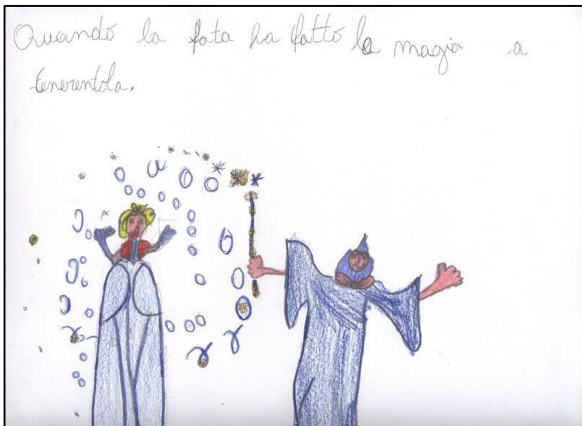 Quando la fata ha fatto la magia a
Cenerentola.